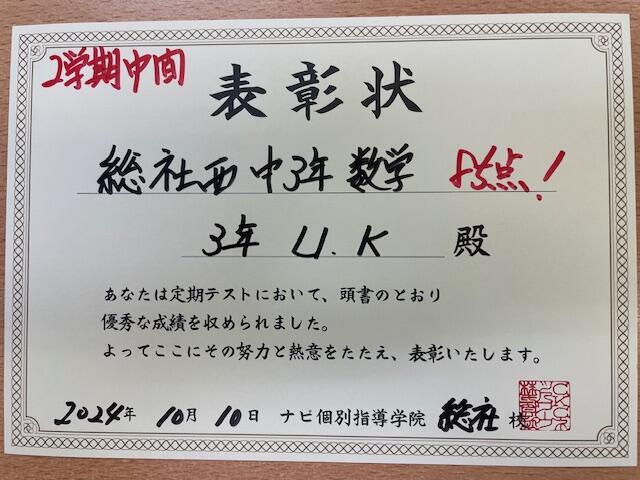 2学期中間
表彰状
総社西中3年 数学 85点!
3年 U.K 殿
あなたは定期テストにおいて、頭書のとおり
優秀な成績を収められました。
よってここにその努力と熱意をたたえ、表彰いたします。
2024年 10月 10日 ナビ個別指導学院 総社 校